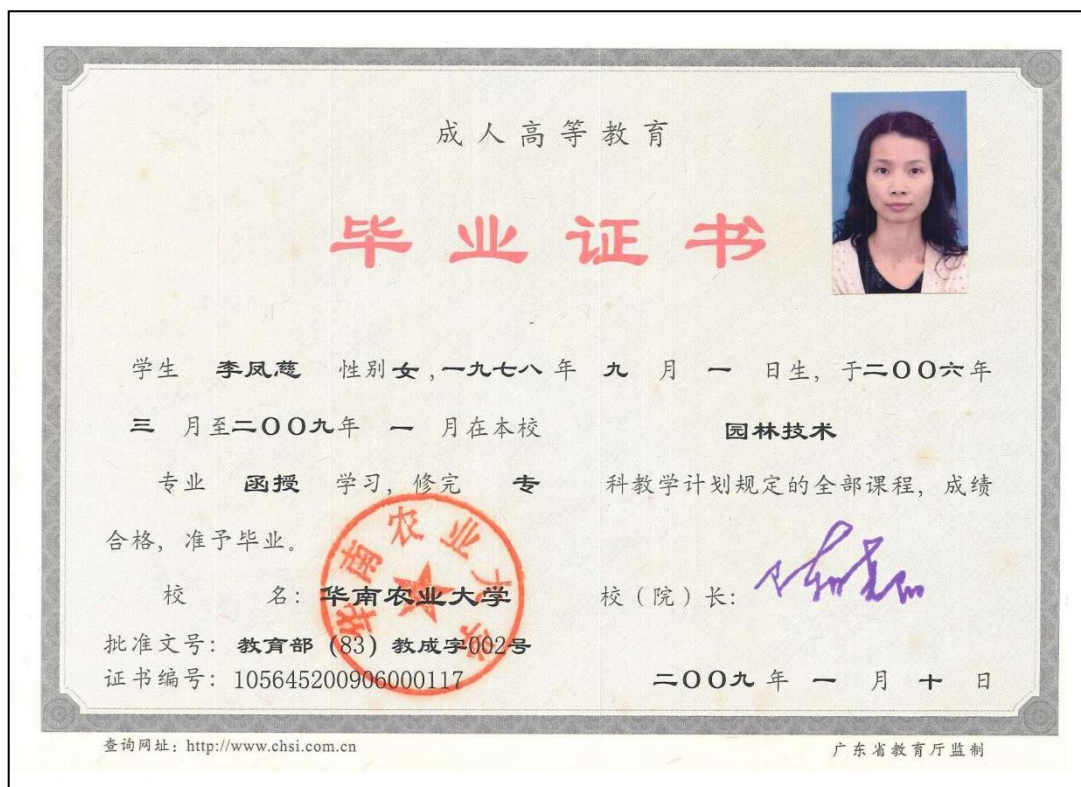 成人高等教育
毕业证书
学生 李凤慈 性别女,一九七八年 九 月 一 日生, 于二〇〇六年
三 月至二〇〇九年 一 月在本校 园林技术
专业 函授 学习, 修完 专 科教学计划规定的全部课程, 成绩
合格, 准予毕业。
华南农业大学
校 名: 华南农业大学 校（院）长:
批准文号: 教育部 (83) 教成字002号
证书编号: 105645200906000117 二〇〇九 年 一 月 十 日
查询网址: http://www.chsi.com.cn 广东省教育厅监制